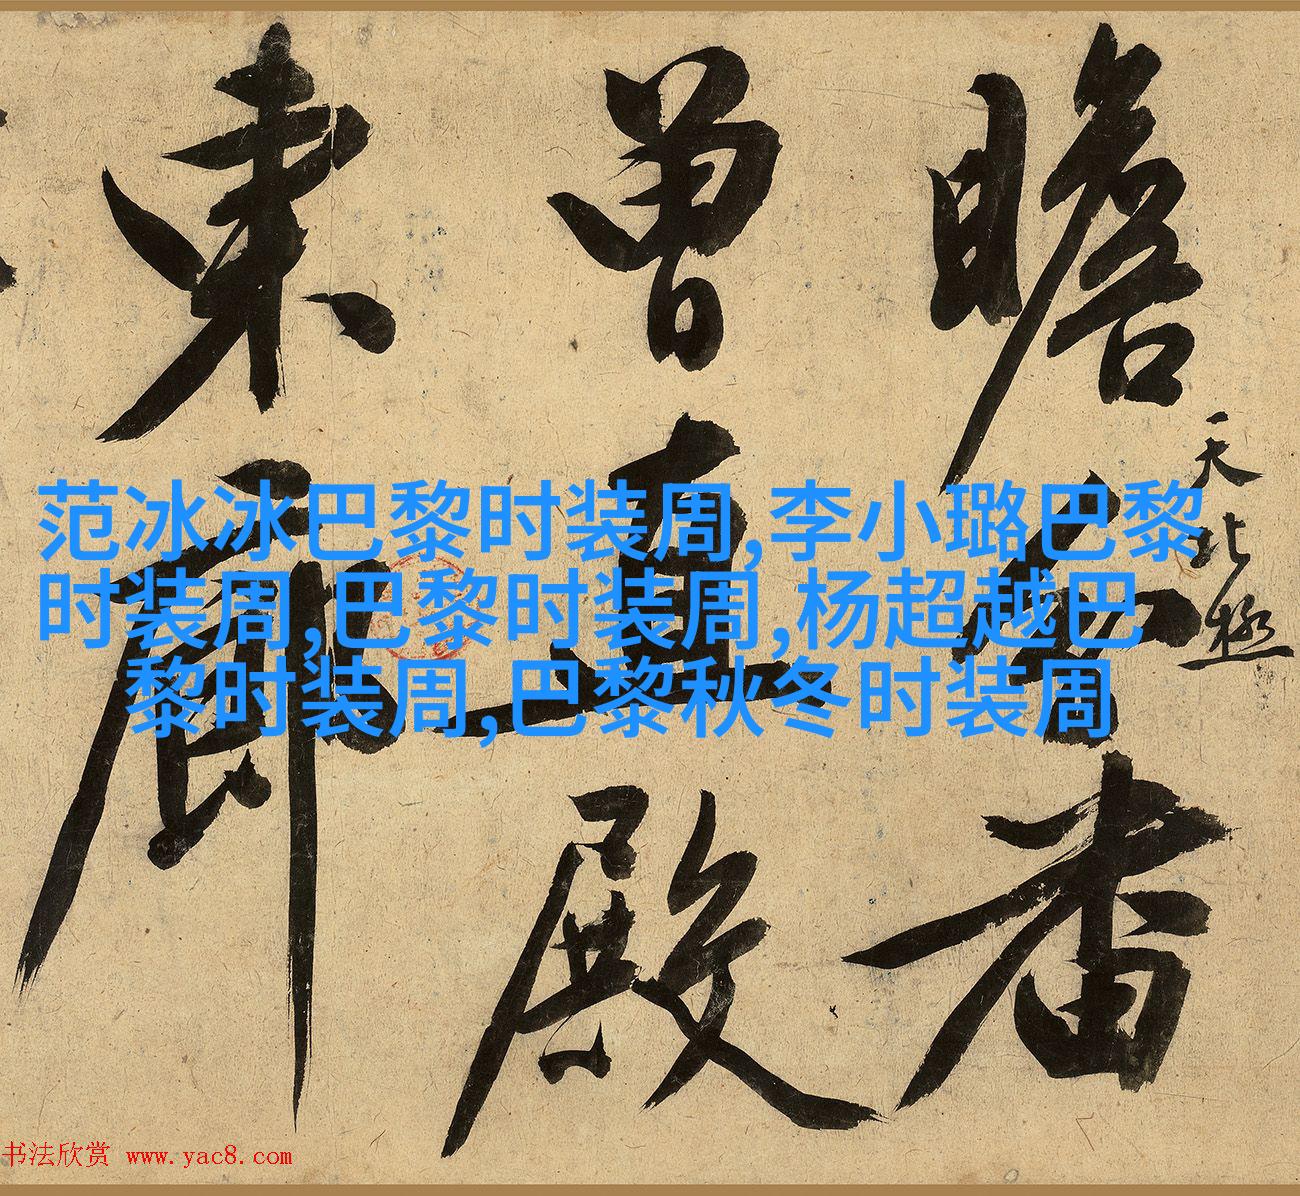 瞻
者
天北極
曾直殿
東廊
范冰冰巴黎时装周,李小璐巴黎
时装周,巴黎时装周,杨超越巴
黎时装周,巴黎秋冬时装周
书法欣赏 www.yac8.com